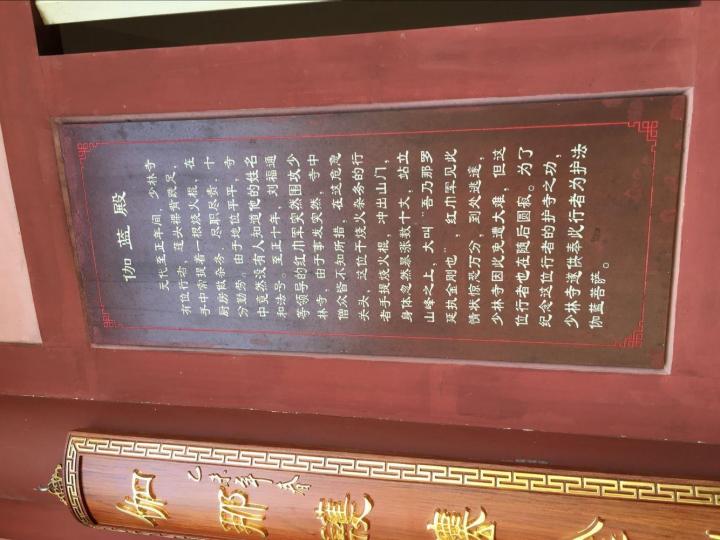 伽蓝殿
元代至正年间，少林寺
有位行者，蓬头裸背跣足，在
手中常提着一根烧火棍，十
厨房做杂务，尽职尽责，寺
分勤劳。由于地位平平，
中竟然没有人知道他的姓名
和法号。至正十年，刘福通
等领导的红巾军突然围攻少
林寺，由于事发突然，寺中
僧众皆不知所措，在这危急
关头，这位干烧火杂务的行
者手提烧火棍，冲出山门，
身体忽然暴涨数十丈，站立
山峰之上，大叫“吾乃那罗
延执金刚也”，红巾军见此
情状惊恐万分，到处逃遁，
少林寺因此免遭大难，但这
位行者也在随后圆寂。为了
纪念这位行者的护寺之功，
少林寺遂供奉此行者为护法
伽蓝菩萨。
伽那
乙未年春